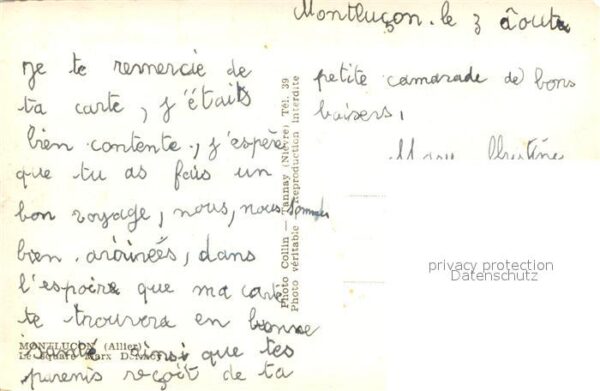 Montluçon. le 3 août
je te remercie de
ta carte, j'étaits
bien contente, j'espère
que tu as fais un
bon voyage, nous, nous sommes
bien arrivées, dans
l'espoire que ma carte
te trouvera en bonne
santé ainsi que tes
parents reçoit de ta
petite camarade de bons
baisers,
Mary Christine
Photo Collin — Tannay (Nièvre) Tél. 39
Photo véritable Reproduction interdite
MONTLUÇON (Allier)
Le Square Marx Dormoy
privacy protection
Datenschutz